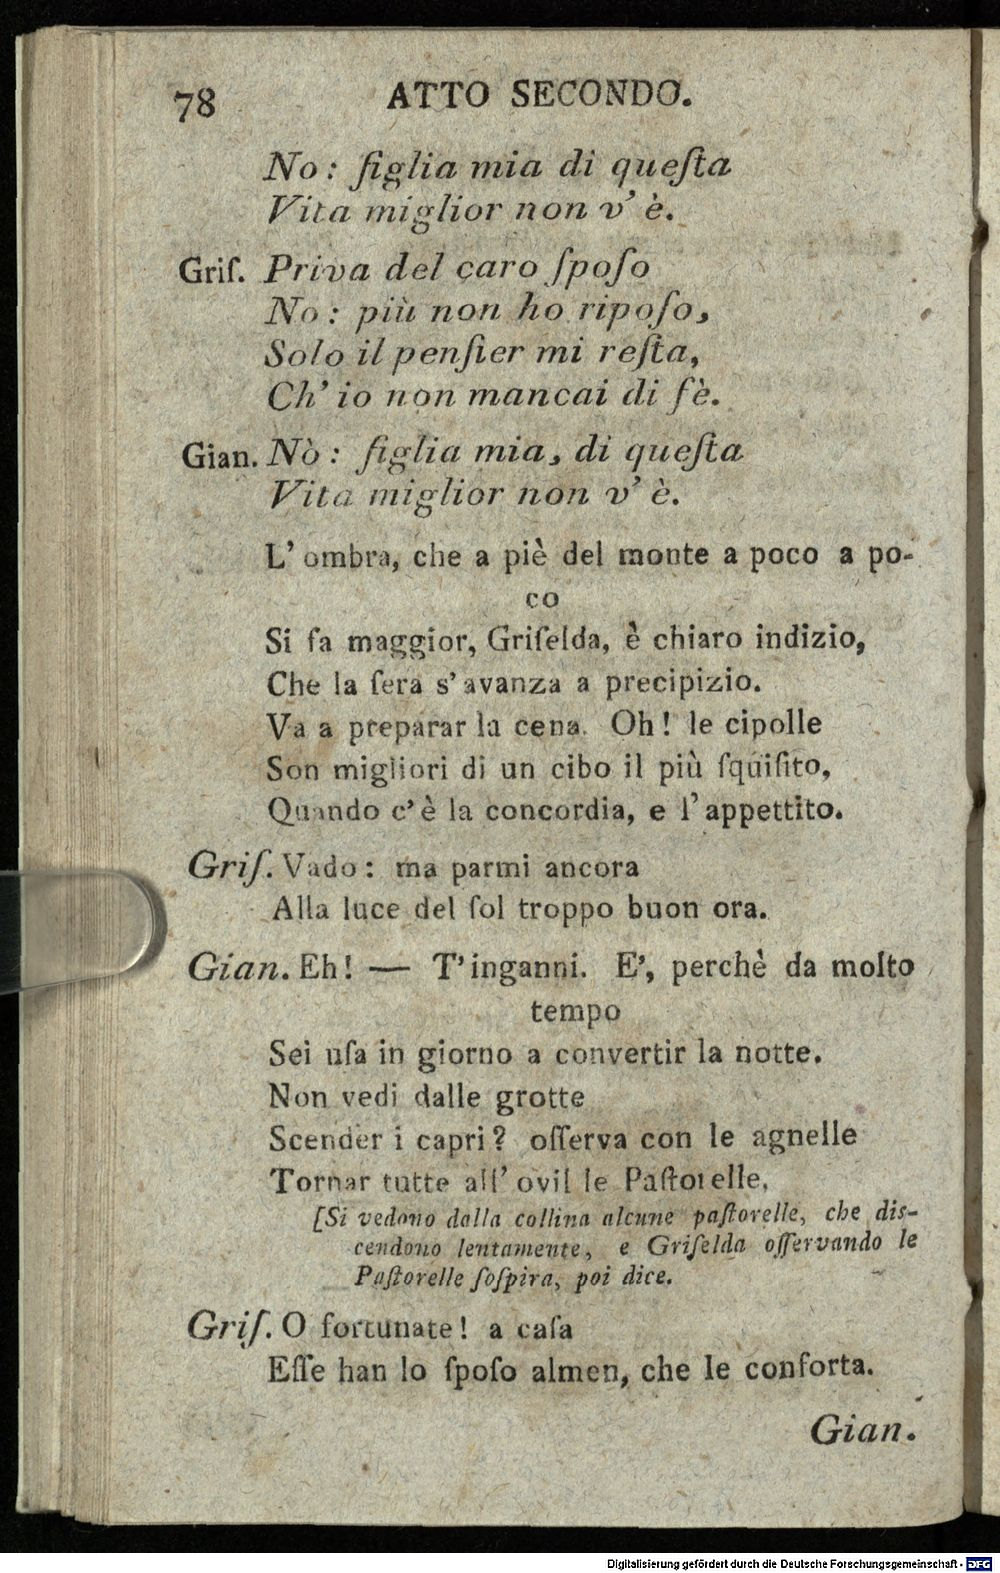 78 ATTO SECONDO.
No: figlia mia di queſta
Vita miglior non v' è.
Griſ. Priva del caro ſpoſo
No: più non ho ripoſo,
Solo il penſier mi reſta,
Ch' io non mancai di fè.
Gian. Nò: figlia mia, di queſta
Vita miglior non v' è.
L' ombra, che a piè del monte a poco a po-
co
Si fa maggior, Griſelda, è chiaro indizio,
Che la ſera s' avanza a precipizio.
Va a preparar la cena. Oh! le cipolle
Son migliori di un cibo il più ſquiſito,
Quando c' è la concordia, e l' appettito.
Griſ. Vado: ma parmi ancora
Alla luce del ſol troppo buon ora.
Gian. Eh! — T' inganni. E', perchè da molto
tempo
Sei uſa in giorno a convertir la notte.
Non vedi dalle grotte
Scender i capri? oſſerva con le agnelle
Tornar tutte all' ovil le Paſtorelle.
[Si vedono dalla collina alcune paſtorelle, che dis-
cendono lentamente, e Griſelda oſſervando le
Paſtorelle ſoſpira, poi dice.
Griſ. O fortunate! a caſa
Eſſe han lo ſpoſo almen, che le conforta.
Gian.
Digitalisierung gefördert durch die Deutsche Forschungsgemeinschaft - DFG